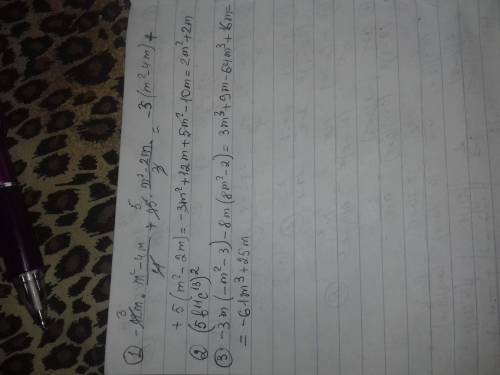 ① -12m · m²-4m/4 + 15 · m²-2m/3 = -3(m²-4m)+
+5(m²-2m) = -3m²+12m+5m²-10m = 2m²+2m
② (5b¹¹c¹³)²
③ -3m(-m²-3)-8m(8m²-2) = 3m³+9m-64m³+16m=
= -61m³+25m